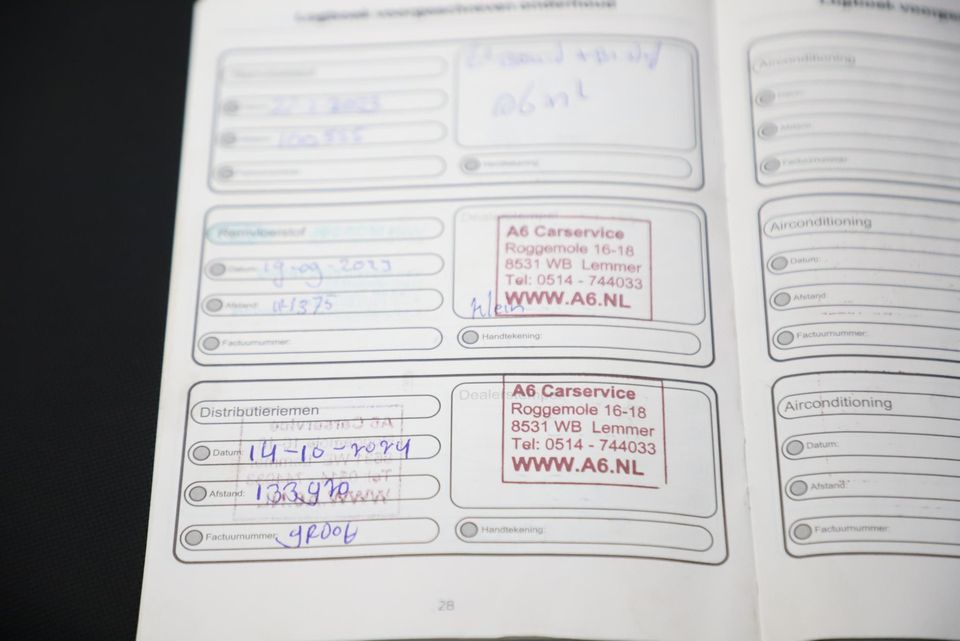 Logboek voorgeschreven onderhoud
22-1-2023
100.555
A6 nl
Handtekening:
Remvloeistof
Datum: 19-09-2023
Afstand:
Factuurnummer:
Dealerstempel
A6 Carservice
Roggemole 16-18
8531 WB Lemmer
Tel: 0514 - 744033
WWW.A6.NL
Klein
Handtekening:
Distributieriemen
Datum: 14-10-2024
Afstand: 133,970
Factuurnummer: groot
Dealerstempel
A6 Carservice
Roggemole 16-18
8531 WB Lemmer
Tel: 0514 - 744033
WWW.A6.NL
Handtekening:
28
Logboek
Airconditioning
Datum:
Afstand:
Factuurnummer:
Airconditioning
Datum:
Afstand:
Factuurnummer:
Airconditioning
Datum:
Afstand:
Factuurnummer: